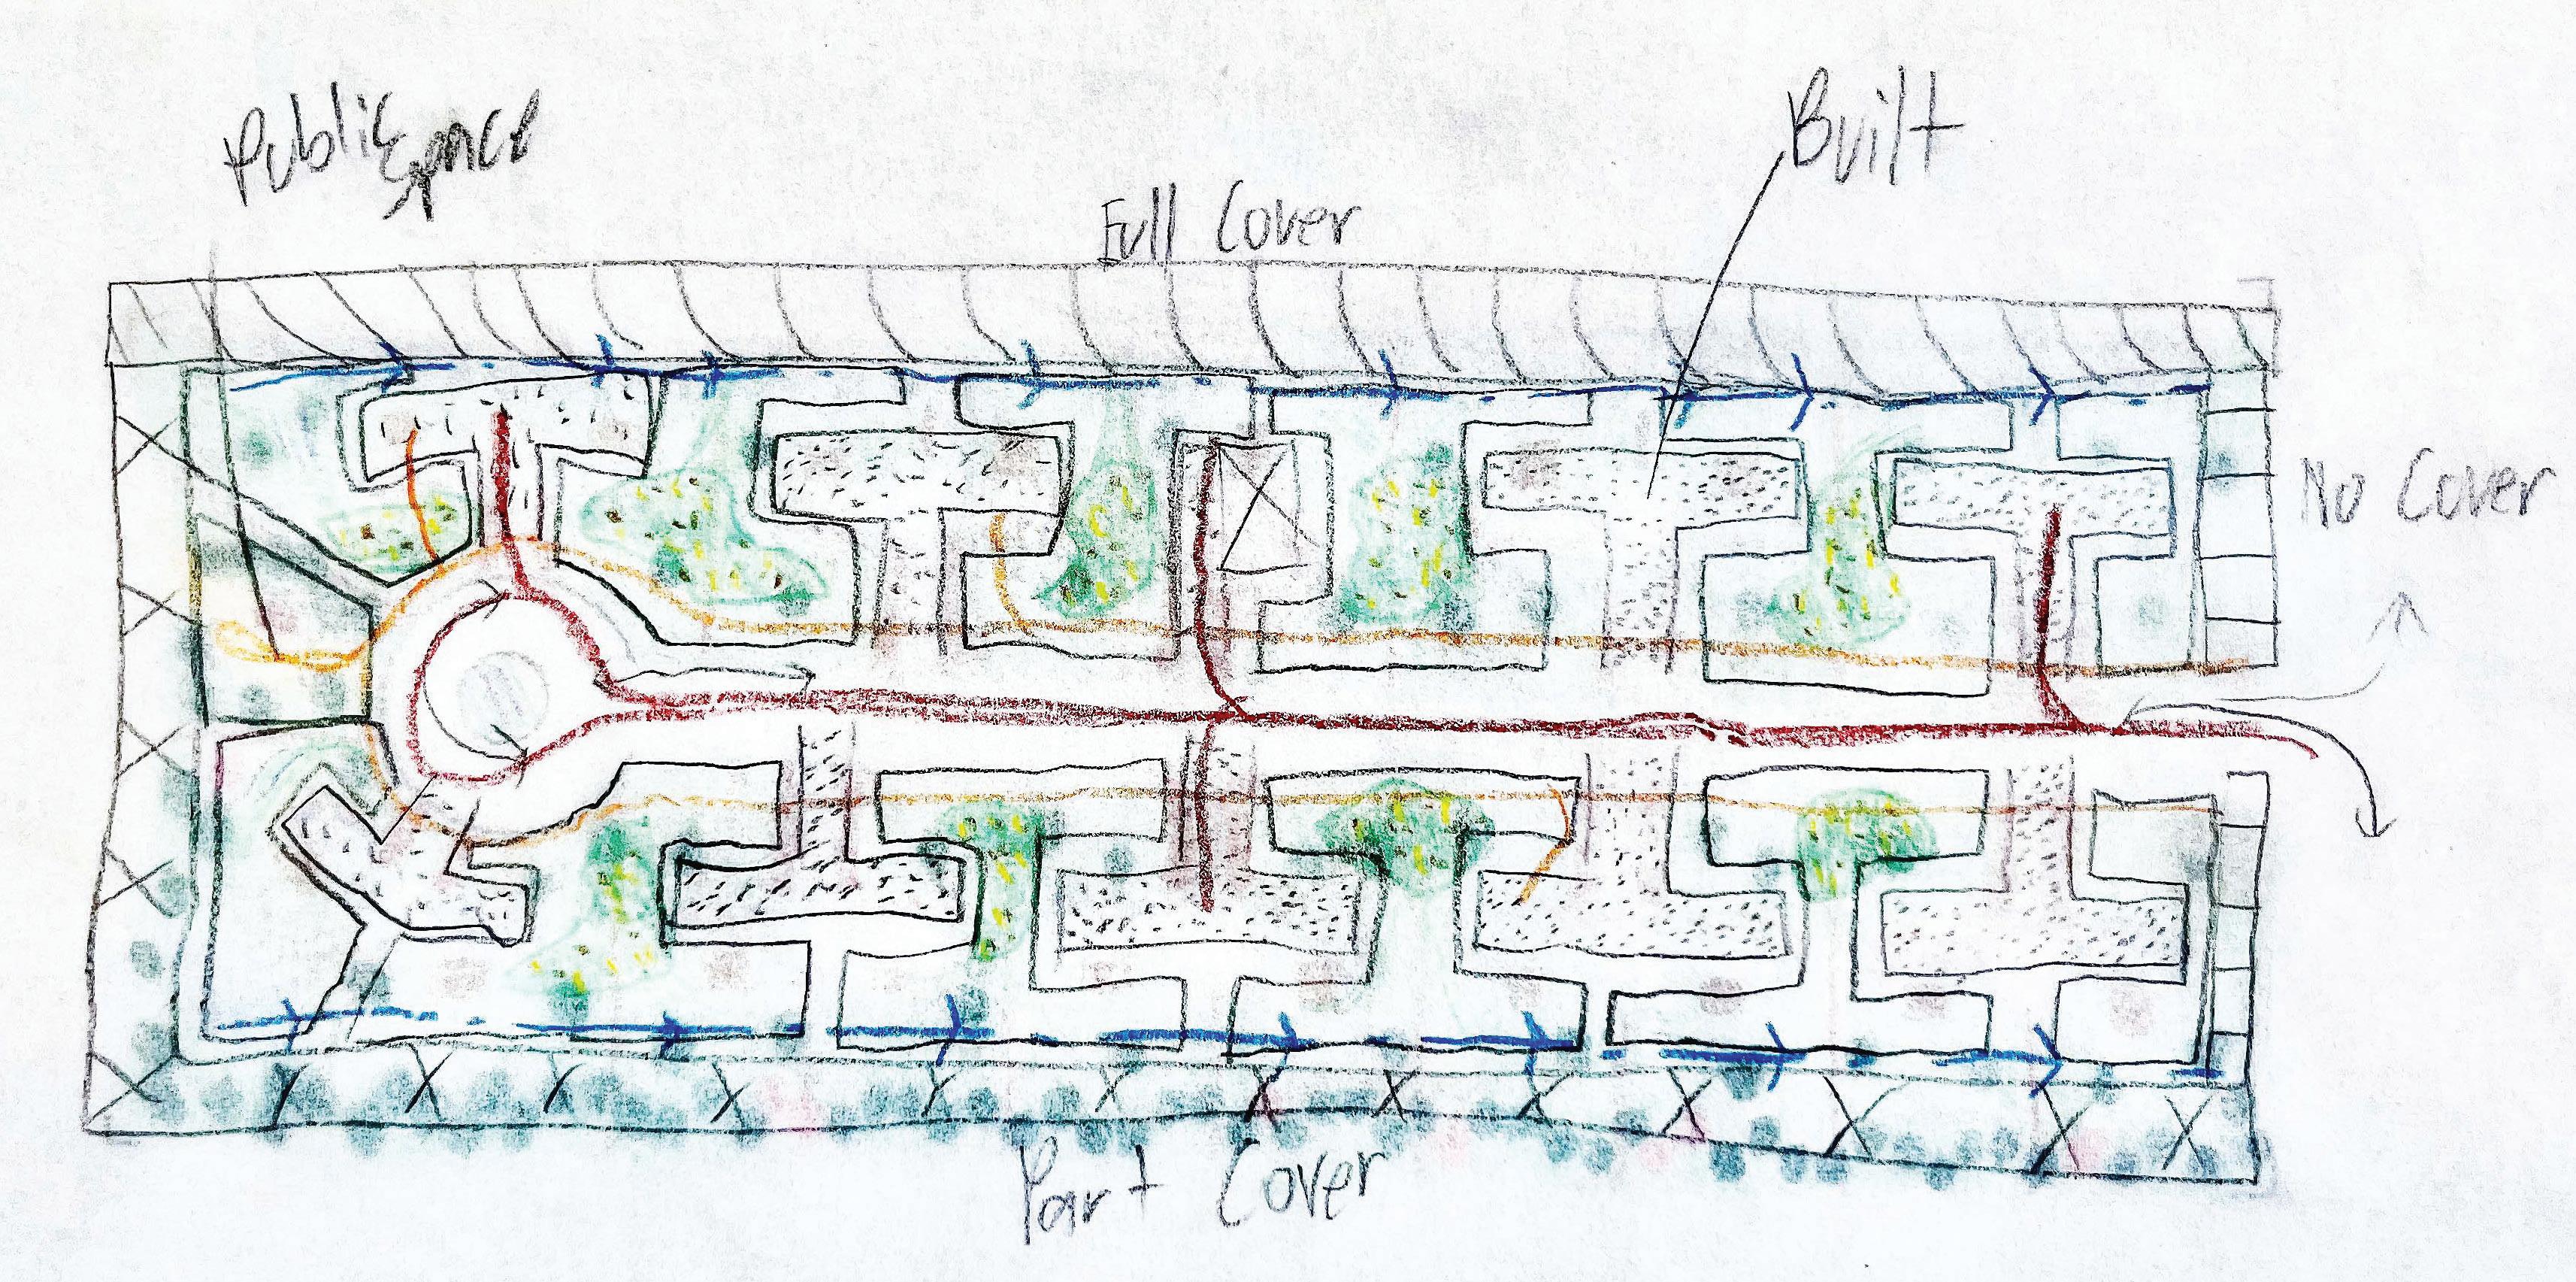 Public Space
Built
Full Cover
No Cover
Part Cover